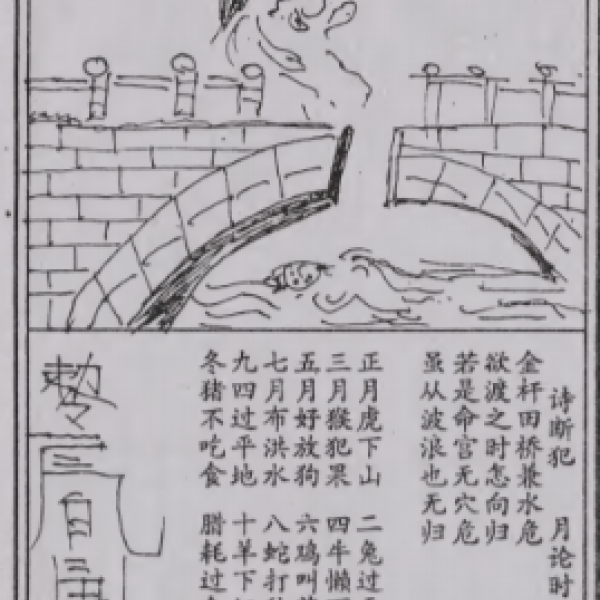 诗断犯 月论时
金杆田桥兼水危
欲渡之时怎向归
若是命宫无穴危
虽从波浪也无归
正月虎下山 二兔过
三月猴犯果 四牛懒
五月好放狗 六鸡叫
七月布洪水 八蛇打
九四过平地 十羊下
冬猪不吃食 腊耗过
敕令